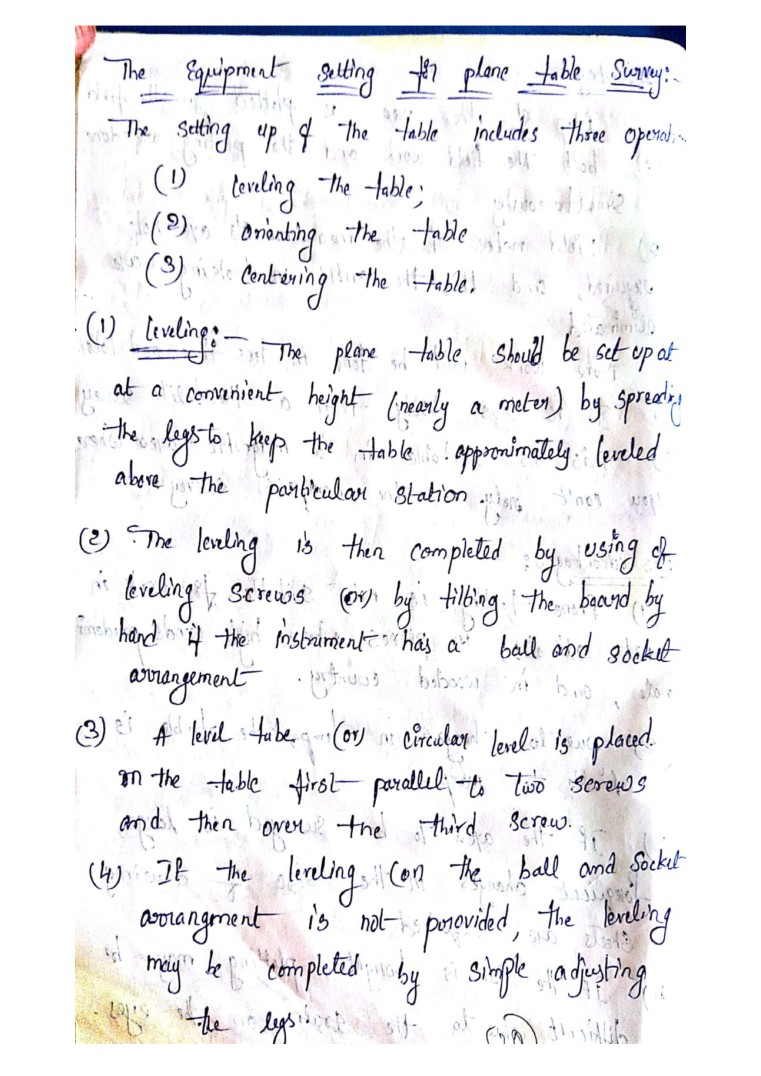 The Equipment setting for plane table Survey:-
The setting up of the table includes three operat..
(1) leveling the table;
(2) orienting the table
(3) Centering the table.
(1) leveling:- The plane table should be set up at
at a convenient height (nearly a meter) by spreading
the legs to keep the table approximately leveled
above the particular station.
(2) The leveling is then completed by using of
leveling screws (or) by tilting the board by
hand if the instrument has a ball and socket
arrangement
(3) A level tube (or) circular level is placed
on the table first parallel to two screws
and then over the third screw.
(4) If the leveling (on the ball and socket
arrangment is not provided, the leveling
may be completed by simple adjusting
the legs